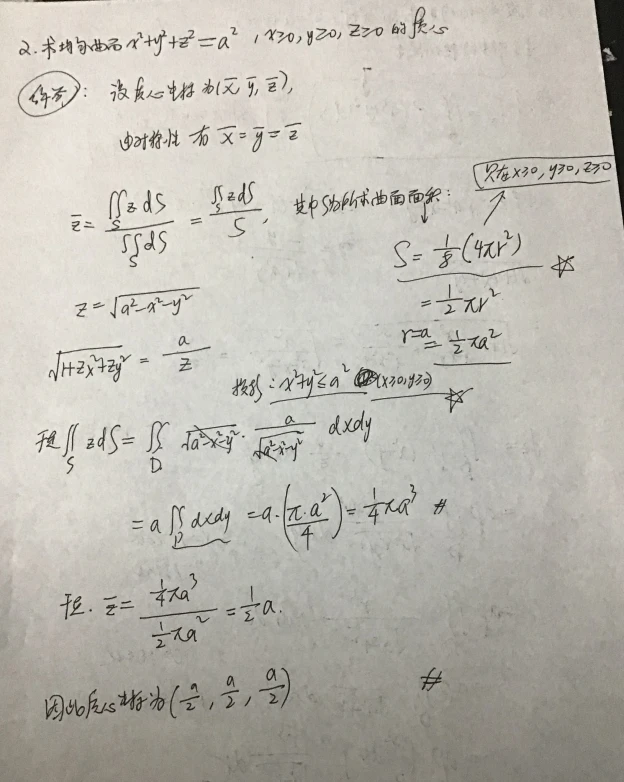 2. 求均匀曲面 x²+y²+z²=a², x≥0, y≥0, z≥0 的质心
解答: 设质心坐标为(x̄, ȳ, z̄),
由对称性 有 x̄=ȳ=z̄
z̄ = ∬_S z dS / ∬_S dS = ∬_S z dS / S, 其中S为所求曲面面积:
只在x≥0, y≥0, z≥0
S = 1/8 (4πr²) ☆
= 1/2 πr²
r=a = 1/2 πa²
z = √(a²-x²-y²)
√(1+zx²+zy²) = a/z
投影: x²+y²≤a² (x≥0,y≥0) ☆
于是 ∬_S z dS = ∬_D √(a²-x²-y²) · a/√(a²-x²-y²) dxdy
= a ∬_D dxdy = a·(π·a²/4) = 1/4 πa³ #
于是. z̄ = (1/4 πa³)/(1/2 πa²) = 1/2 a.
因此质心坐标为 (a/2, a/2, a/2) #